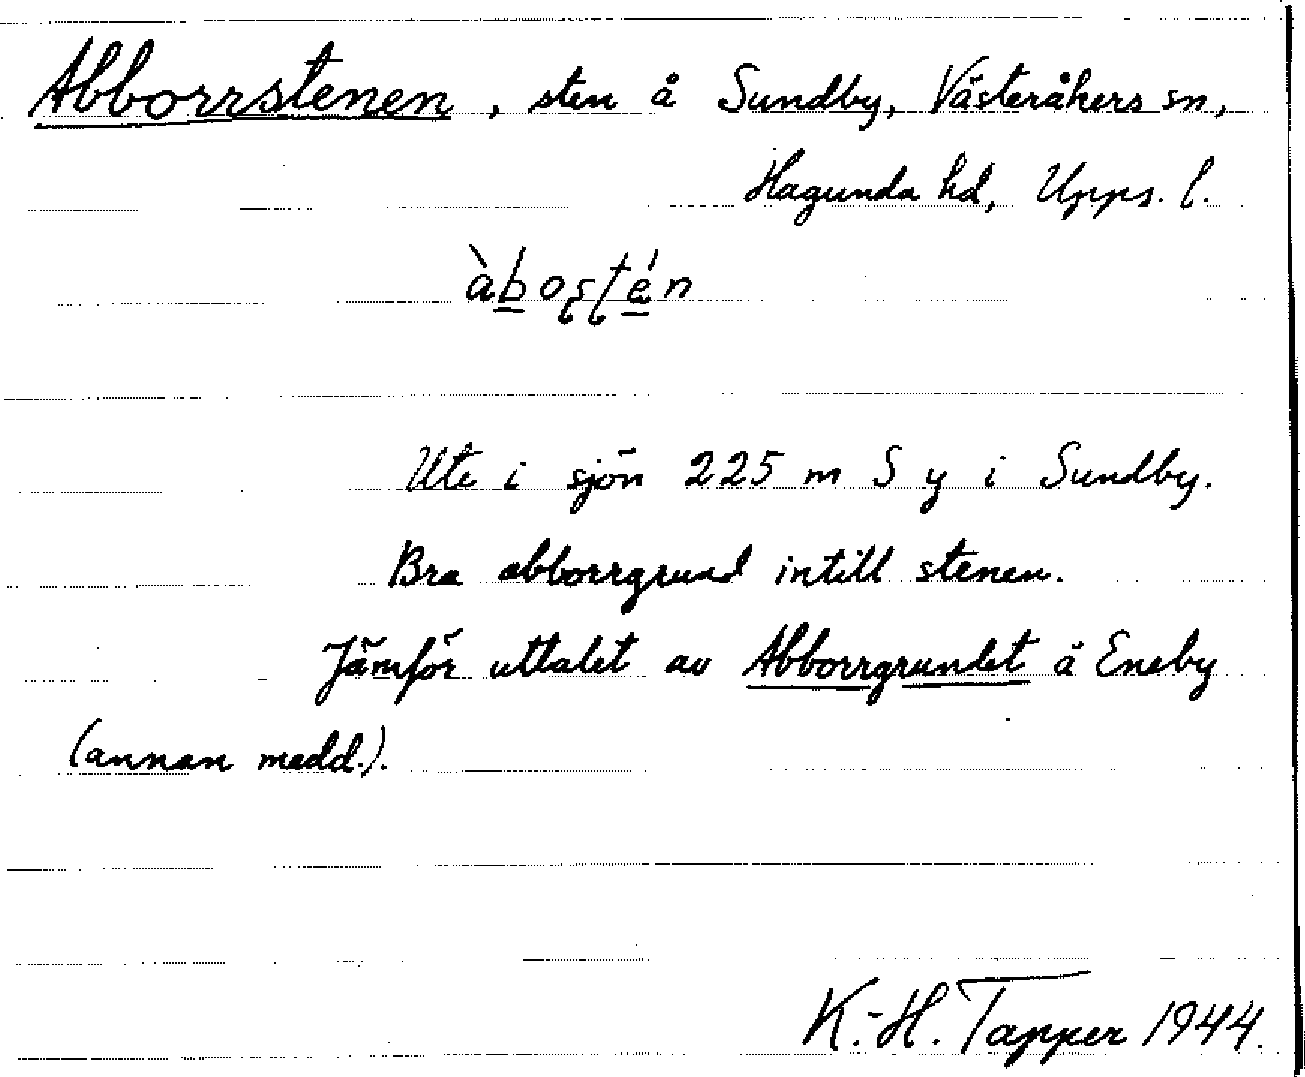 Abborrstenen, sten å Sundby, Västeråkers sn,
Hagunda hd, Upps. l.
àbo
Ute i sjön 225 m S y i Sundby.
Bra abborrgrund intill stenen.
Jämför uttalet av Abborrgrundet å Eneby
(annan medd.).
K.-H. Tapper 1944.